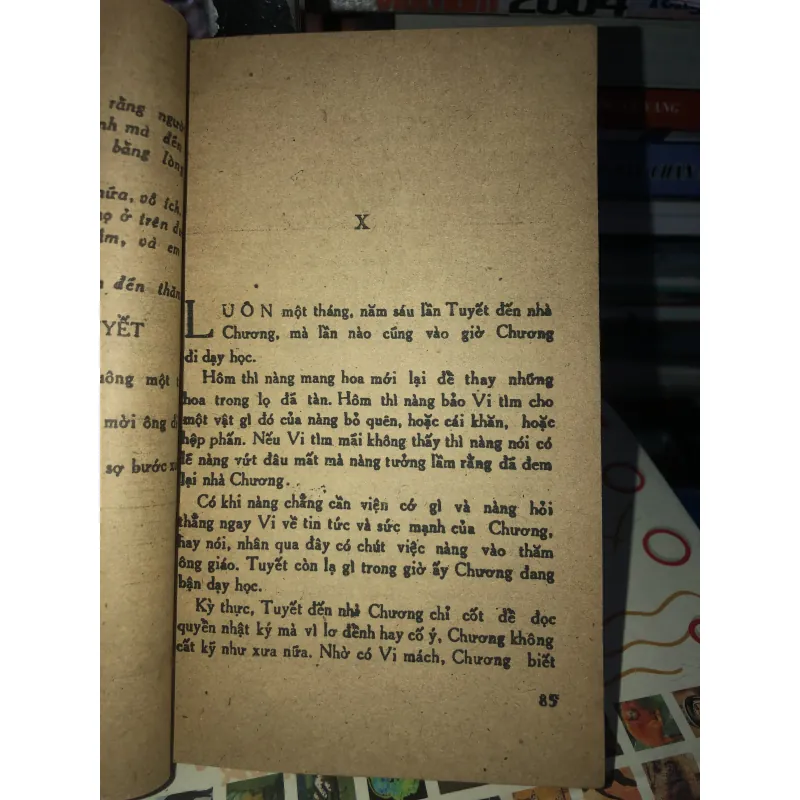 rằng ngườ
nh mà đến
bằng lòng
nữa, vô ích.
họ ở trên đ
và em
đến thăn
YẾT
uông một t
mời ông đ
sợ bước x
X
LUÔN một tháng, năm sáu lần Tuyết đến nhà
Chương, mà lần nào cũng vào giờ Chương
đi dạy học.
Hôm thì nàng mang hoa mới lại để thay những
hoa trong lọ đã tàn. Hôm thì nàng bảo Vi tìm cho
một vật gì đó của nàng bỏ quên, hoặc cái khăn, hoặc
hộp phấn. Nếu Vi tìm mãi không thấy thì nàng nói có
lẽ nàng vứt đâu mất mà nàng tưởng lầm rằng đã đem
lại nhà Chương.
Có khi nàng chẳng cần viện cớ gì và nàng hỏi
thẳng ngay Vi về tin tức và sức mạnh của Chương,
hay nói, nhân qua đây có chút việc nàng vào thăm
ông giáo. Tuyết còn lạ gì trong giờ ấy Chương đang
bận dạy học.
Kỳ thực, Tuyết đến nhà Chương chỉ cốt để đọc
quyền nhật ký mà vì lơ đễnh hay cố ý, Chương không
cất kỹ như xưa nữa. Nhờ có Vi mách, Chương biết
85
2004